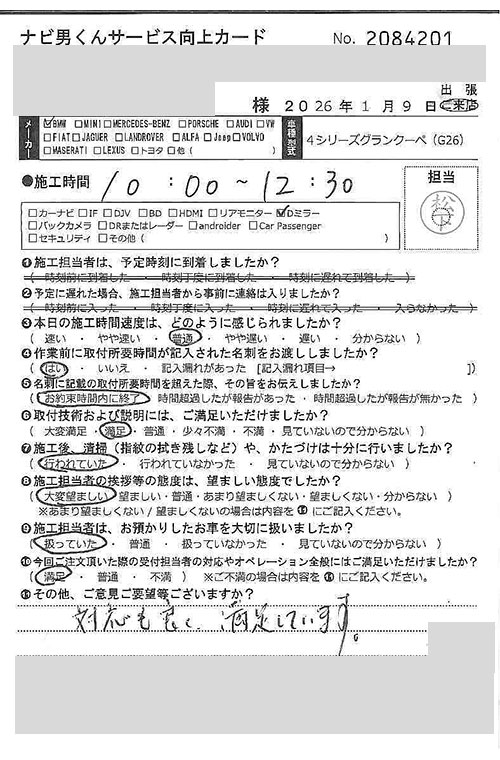 ナビ男くんサービス向上カード No. 2084201
様 2026年1月9日 出張 ご来店
メーカー ☑BMW □MINI □MERCEDES-BENZ □PORSCHE □AUDI □VW
□FIAT □JAGUER □LANDROVER □ALFA □Jeep □VOLVO
□MASERATI □LEXUS □トヨタ □他( )
車種型式 4シリーズグランクーペ(G26)
●施工時間 10:00~12:30
担当
松
□カーナビ □IF □DJV □BD □HDMI □リアモニター ☑Dミラー
□バックカメラ □DRまたはレーダー □androider □Car Passenger
□セキュリティ □その他( )
❶施工担当者は、予定時刻に到着しましたか?
( 時刻前に到着した ・ 時刻丁度に到着した ・ 時刻に遅れて到着した )
❷予定に遅れた場合、施工担当者から事前に連絡は入りましたか?
( 時刻前に入った ・ 時刻丁度に入った ・ 時刻に遅れて入った ・ 入らなかった )
❸本日の施工時間速度は、どのように感じられましたか?
( 速い ・ やや速い ・ 普通 ・ やや遅い ・ 遅い ・ 分からない )
❹作業前に取付所要時間が記入された名刺をお渡ししましたか?
( はい ・ いいえ ・ 記入漏れがあった [記入漏れ項目→ ])
❺名刺に記載の取付所要時間を超えた際、その旨をお伝えしましたか?
( お約束時間内に終了 ・ 時間超過したが報告があった ・ 時間超過したが報告が無かった )
❻取付技術および説明には、ご満足いただけましたか?
( 大変満足 ・ 満足 ・ 普通 ・ 少々不満 ・ 不満 ・ 見ていないので分からない )
❼施工後、清掃(指紋の拭き残しなど)や、かたづけは十分に行いましたか?
( 行われていた ・ 行われていなかった ・ 見ていないので分からない )
❽施工担当者の挨拶等の態度は、望ましい態度でしたか?
( 大変望ましい ・ 望ましい ・ 普通 ・ あまり望ましくない ・ 望ましくない ・ 分からない )
※あまり望ましくない / 望ましくないの場合は内容を⓫にご記入ください。
❾施工担当者は、お預かりしたお車を大切に扱いましたか?
( 扱っていた ・ 普通 ・ 扱っていなかった ・ 見ていないので分からない )
❿今回ご注文頂いた際の受付担当者の対応やオペレーション全般にはご満足いただけましたか?
( 満足 ・ 普通 ・ 不満 ) ※ご不満の場合は内容を⓫にご記入ください。
⓫その他、ご意見ご要望等ございますか?
対応も良く、満足しています。